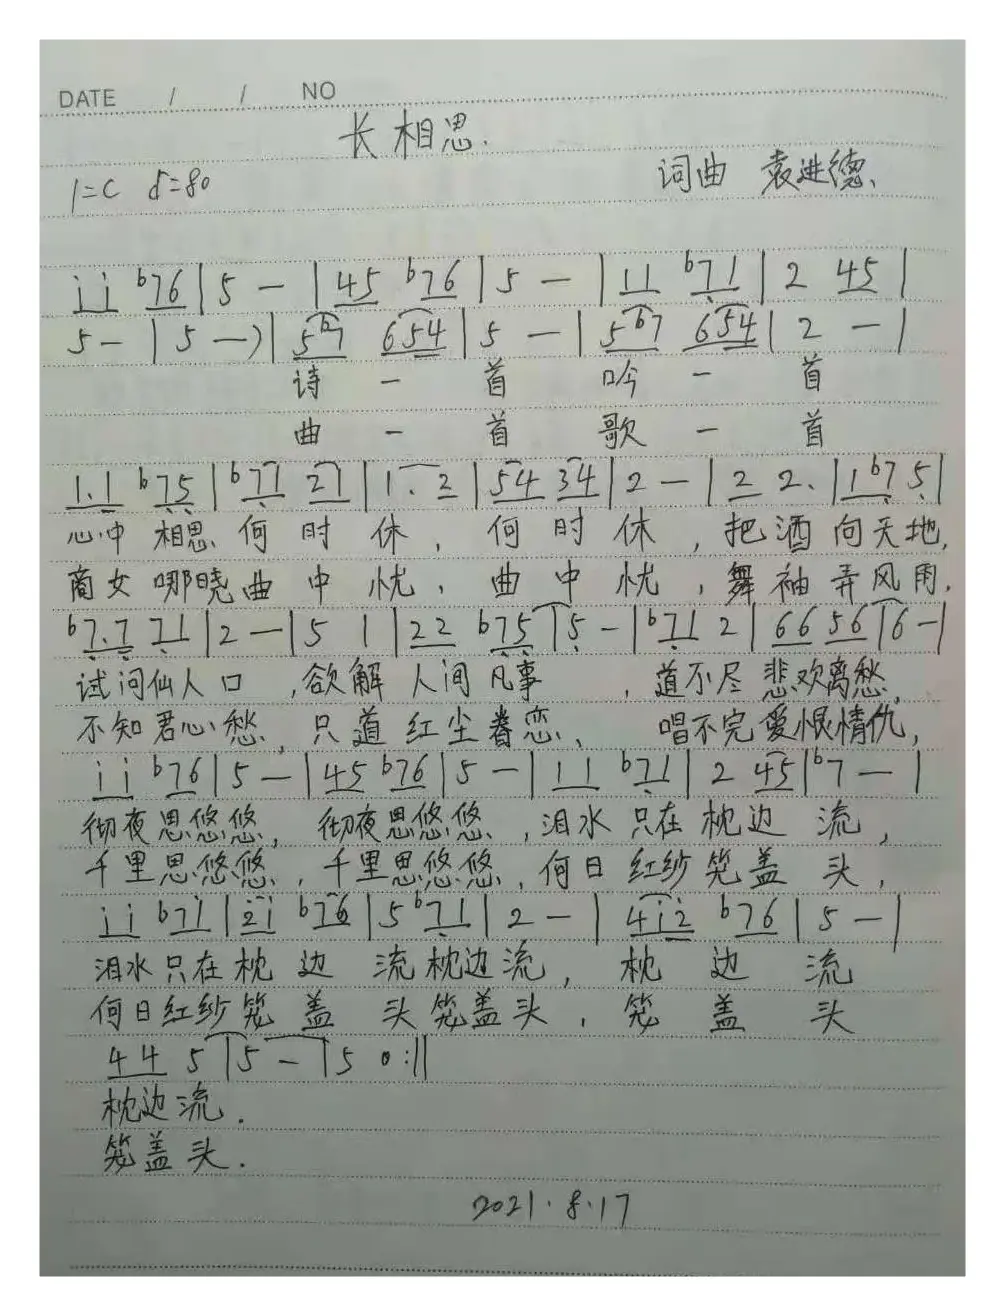 DATE / / NO
长相思.
1=C ♩=80 词曲 袁进德、
i i b76 | 5 — | 45 b76 | 5 — | 11 b71 | 2 45 |
5 — | 5 —) | 5b7 654 | 5 — | 5b7 654 | 2 — |
诗 一 首 吟 一 首
曲 一 首 歌 一 首
1.1 b75 | b771 21 | 1.2 | 54 34 | 2 — | 2 2. | 1b75 |
心中 相思 何时休，何时休，把酒向天地,
商女哪晓曲中忧，曲中忧，舞袖弄风雨.
b7.7 71 | 2 — | 5 1 | 22 b75 | 5 — | b71 2 | 66 56 | 6 — |
试问仙人口，欲解人间凡事，道不尽悲欢离愁,
不知君心愁，只道红尘眷恋、唱不完爱恨情仇,
i i b76 | 5 — | 45 b76 | 5 — | 11 b71 | 2 45 | b7 — |
彻夜思悠悠，彻夜思悠悠，泪水只在枕边流，
千里思悠悠，千里思悠悠，何日红纱笼盖头，
i i b7i | 2i b76 | 5 b71 | 2 — | 4i2 b76 | 5 — |
泪水只在枕边流枕边流，枕边流
何日红纱笼盖头笼盖头，笼盖头
4 4 5 | 5 — | 5 0 :||
枕边流.
笼盖头.
2021.8.17